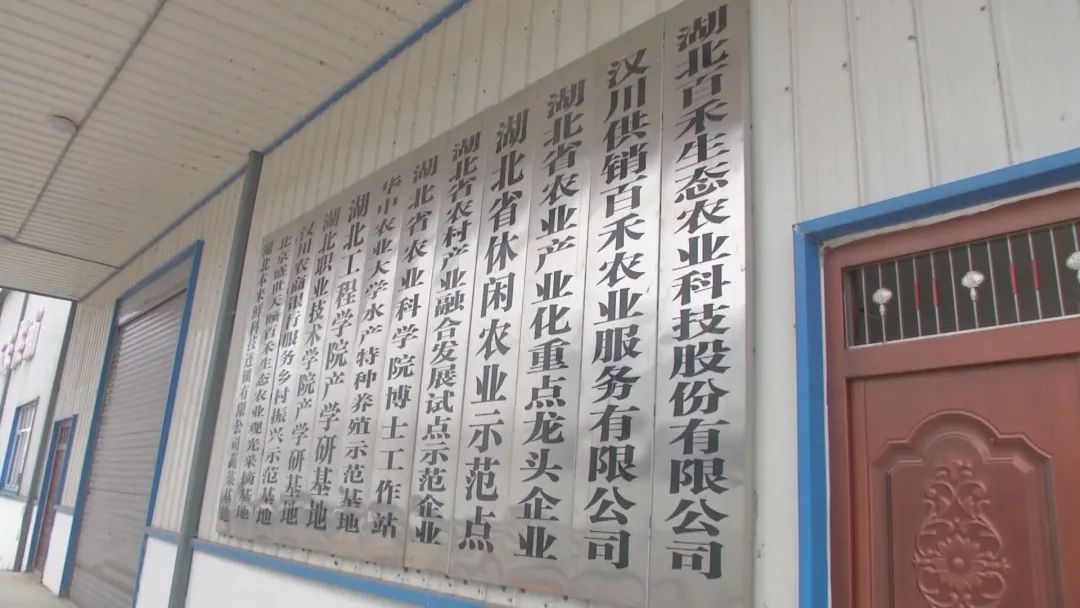 湖北百禾生态农业科技股份有限公司
汉川供销百禾农业服务有限公司
湖北省农业产业化重点龙头企业
湖北省休闲农业示范点
湖北省农村产业融合发展试点示范企业
湖北省农业科学院博士工作站
华中农业大学水产特种养殖示范基地
湖北工程学院产学研基地
湖北职业技术学院产学研基地
汉川农商银行服务乡村振兴示范基地
北京盛世天颐百禾生态农业观光采摘基地
湖北本来鲜科技连锁有限公司蔬菜基地